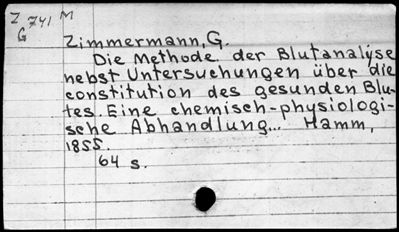 Z 741 M
G
Zimmermann, G.
Die Methode der Blutanalyse
nebst Untersuchungen über die
constitution des gesunden Blu-
tes. Eine chemisch-physiologi-
sche Abhandlung... Hamm,
1855.
64 s.